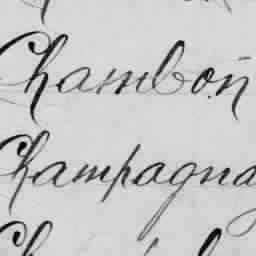 Chambon
Champagna